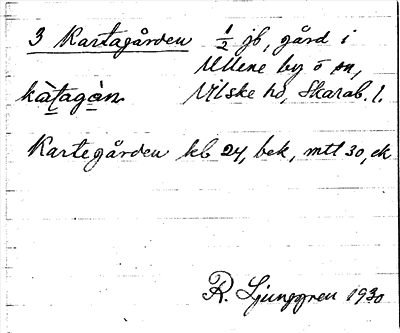 3 Kartagården ½ jb, gård i
Ullene by o sn,
kàtagàn Vilske hd, Skarab. l.
Kartegården kb 24, bek, mtl 30, ck
R. Ljunggren 1930